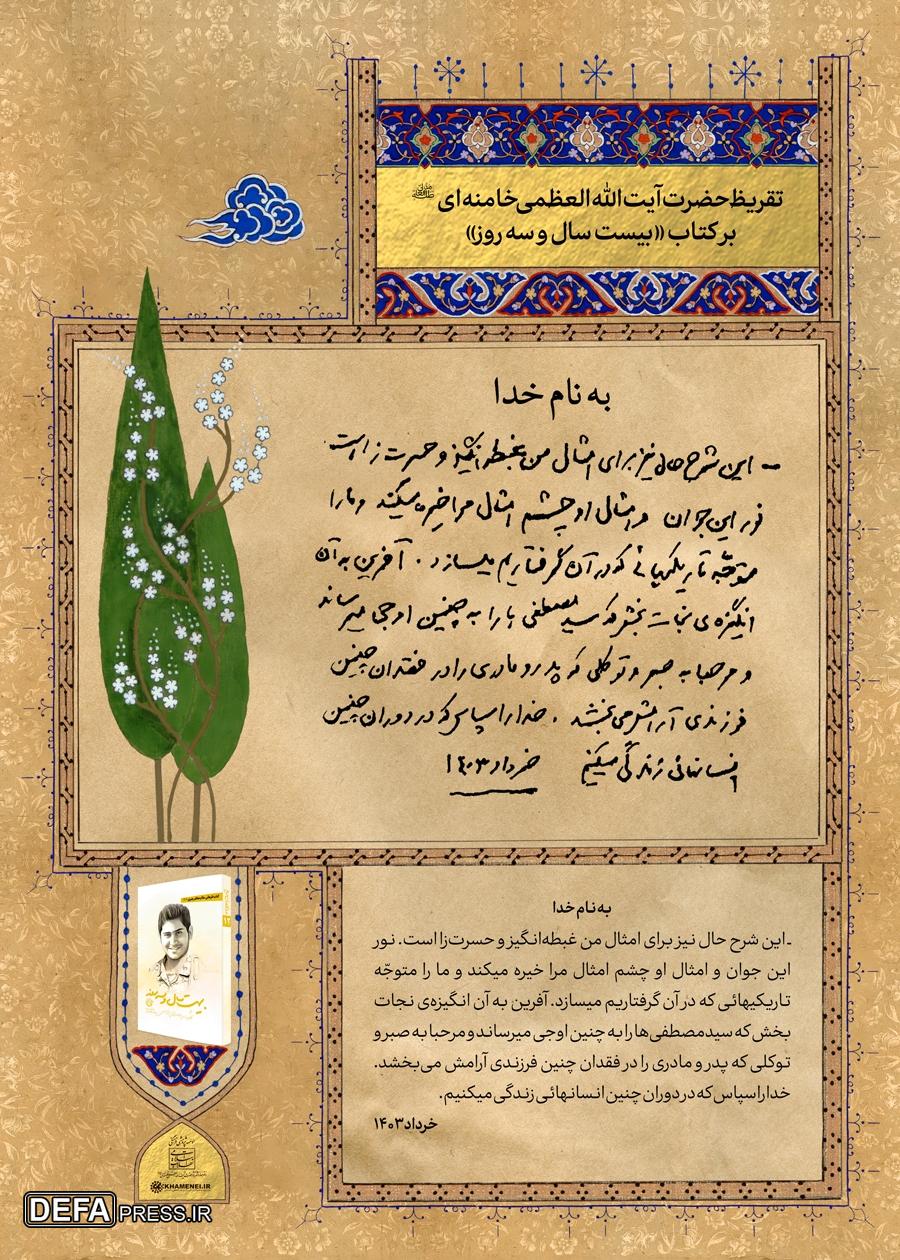 تقریظ حضرت آیت‌الله‌العظمی خامنه‌ای
بر کتاب «بیست سال و سه روز»
به نام خدا
- این شرح حال نیز برای امثال من غبطه‌انگیز و حسرت‌زا است.
نور این جوان و امثال او چشم امثال مرا خیره میکند و ما را
متوجّه تاریکیهائی که در آن گرفتاریم میسازد. آفرین به آن
انگیزه‌ی نجات بخش که سید مصطفی‌ها را به چنین اوجی میرساند
و مرحبا به صبر و توکلی که پدر و مادری را در فقدان چنین
فرزندی آرامش می‌بخشد. خدا را سپاس که در دوران چنین
انسانهائی زندگی میکنیم خرداد ۱۴۰۳
به نام خدا
- این شرح حال نیز برای امثال من غبطه‌انگیز و حسرت‌زا است. نور
این جوان و امثال او چشم امثال مرا خیره میکند و ما را متوجّه
تاریکیهائی که در آن گرفتاریم میسازد. آفرین به آن انگیزه‌ی نجات
بخش که سید مصطفی‌ها را به چنین اوجی میرساند و مرحبا به صبر و
توکلی که پدر و مادری را در فقدان چنین فرزندی آرامش می‌بخشد.
خدا را سپاس که در دوران چنین انسانهائی زندگی میکنیم.
خرداد ۱۴۰۳
بیست سال و سه روز
KHAMENEI.IR
DEFAPRESS.IR